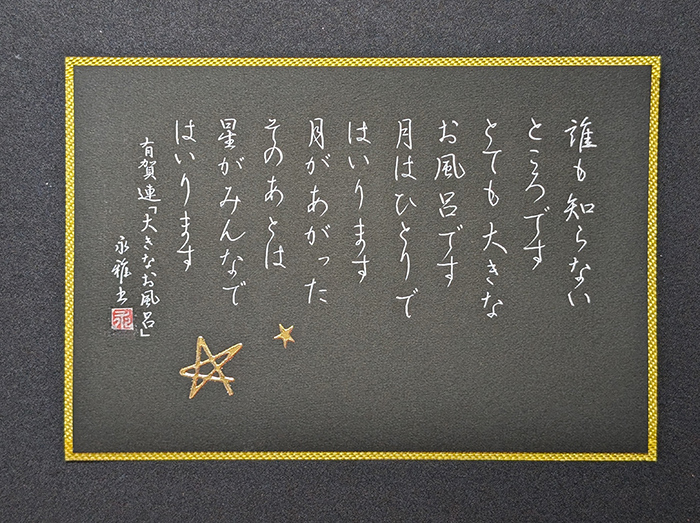 誰も知らない
ところです
とても大きな
お風呂です
月はひとりで
はいります
月があがった
そのあとは
星がみんなで
はいります
有賀連「大きなお風呂」
永雅書